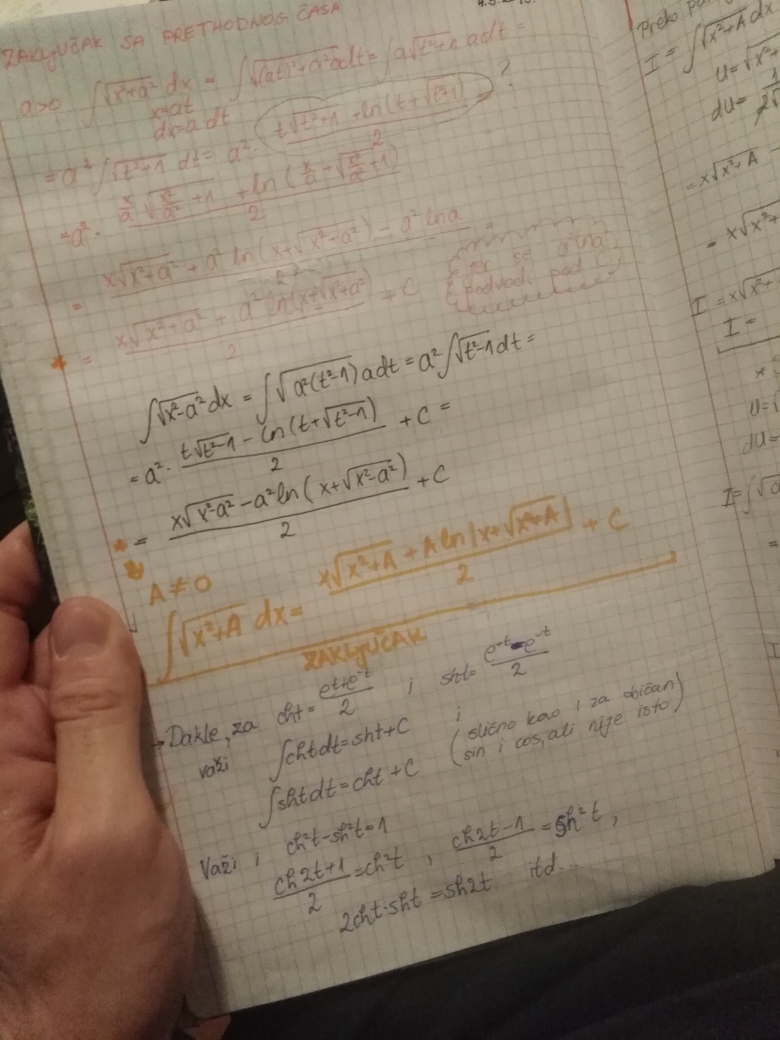 ZAKLJUČAK SA PRETHODNOG ČASA
a>0 ∫√(x²+a²) dx = ∫√((at)²+a²) adt = ∫a√(t²+1) adt =
x=at
dx=a dt
= a² ∫√(t²+1) dt = a² · (t√(t²+1) + ln(t+√(t²+1)))/2 ?
= a² · (x/a √(x²/a² + 1) + ln(x/a + √(x²/a² + 1)))/2
= (x√(x²+a²) + a² ln(x+√(x²+a²)) - a² ln a)/2
* = (x√(x²+a²) + a² ln(x+√(x²+a²)))/2 + C
jer se a² ln a
podvodi pod C
∫√(x²-a²) dx = ∫√(a²(t²-1)) adt = a² ∫√(t²-1) dt =
= a² · (t√(t²-1) - ln(t+√(t²-1)))/2 + C =
* = (x√(x²-a²) - a² ln(x+√(x²-a²)))/2 + C
A ≠ 0
∫√(x²+A) dx = (x√(x²+A) + A ln|x+√(x²+A)|)/2 + C
ZAKLJUČAK
→ Dakle, za cht = (e^t+e^-t)/2 i sht = (e^-t - e^-t)/2
važi ∫cht dt = sht + C i
∫sht dt = cht + C
(slično kao i za običan
sin i cos, ali nije isto)
Važi i ch²t - sh²t = 1
(ch2t+1)/2 = ch²t , (ch2t-1)/2 = sh²t ,
2cht·sht = sh2t itd...
Preko
I = ∫√(x²+A) dx
U = √(x²+
dU = 1/2√
= x√(x²+A) -
= x√(x²+
I = x√(x²+
I =
U = √
dU =
I = ∫√
=